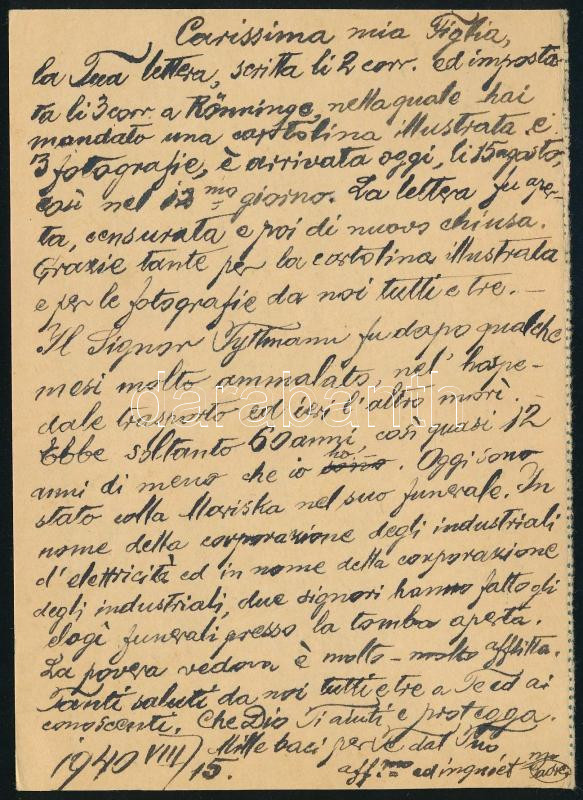 Carissima mia Figlia,
la Tua lettera, scritta li 2 corr. ed imposta-
ta li 3 corr a Rönninge, nella quale hai
mandato una cartolina illustrata e
3 fotografie, è arrivata oggi, li 15 agosto,
così nel 12mo giorno. La lettera fu aper-
ta, censurata e poi di nuovo chiusa.
Grazie tante per la cartolina illustrata
e per le fotografie da noi tutti e tre. —
Il Signor Tyttmann fu dopo qualche
mesi molto ammalato, nel' hospe-
dale trasporto ed ieri l'altro morì.
Ebbe soltanto 60 anni, così quasi 12
anni di meno che io ho. Oggi sono
stato colla Mariska nel suo funerale. In
nome della corporazione degli industriali
d'elettricità ed in nome della corporazione
degli industriali, due signori hanno fatto gli
elogi funerali presso la tomba aperta.
La povera vedova è molto - molto afflitta.
Tanti saluti da noi tutti e tre a Te ed ai
conoscenti. Che Dio Ti aiuti e protegga.
1940 VIII/15. Mille baci per Te dal Tuo
aff.mo ed inquiet.mo Padre
darabanth